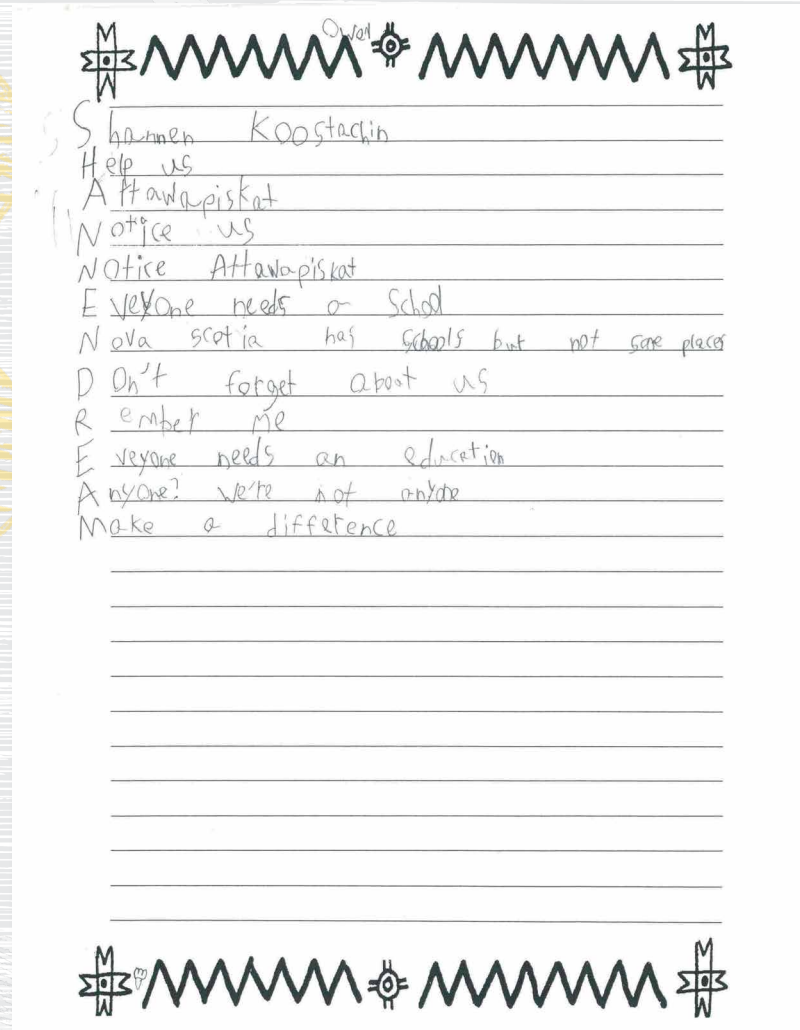 Owen
Shannen Koostachin
Help us
Attawapiskat
Notice us
Notice Attawapiskat
Eveyone needs a School
Nova scotia has schools but not some places
Don't forget about us
Remember me
Eveyone needs an education
Anyone? We're not anyone
Make a difference